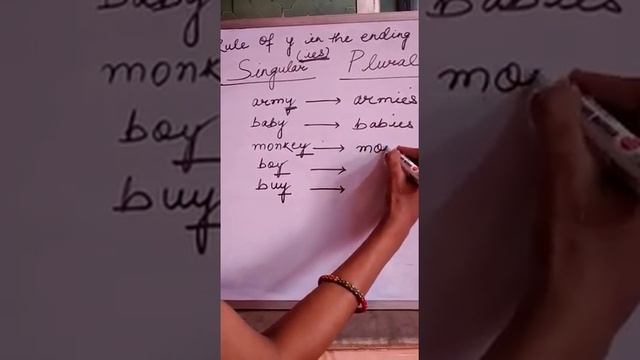 Rule of y in the ending
(ies)
Singular Plural
army → armies
baby → babies
monkey → mo
boy →
buy →